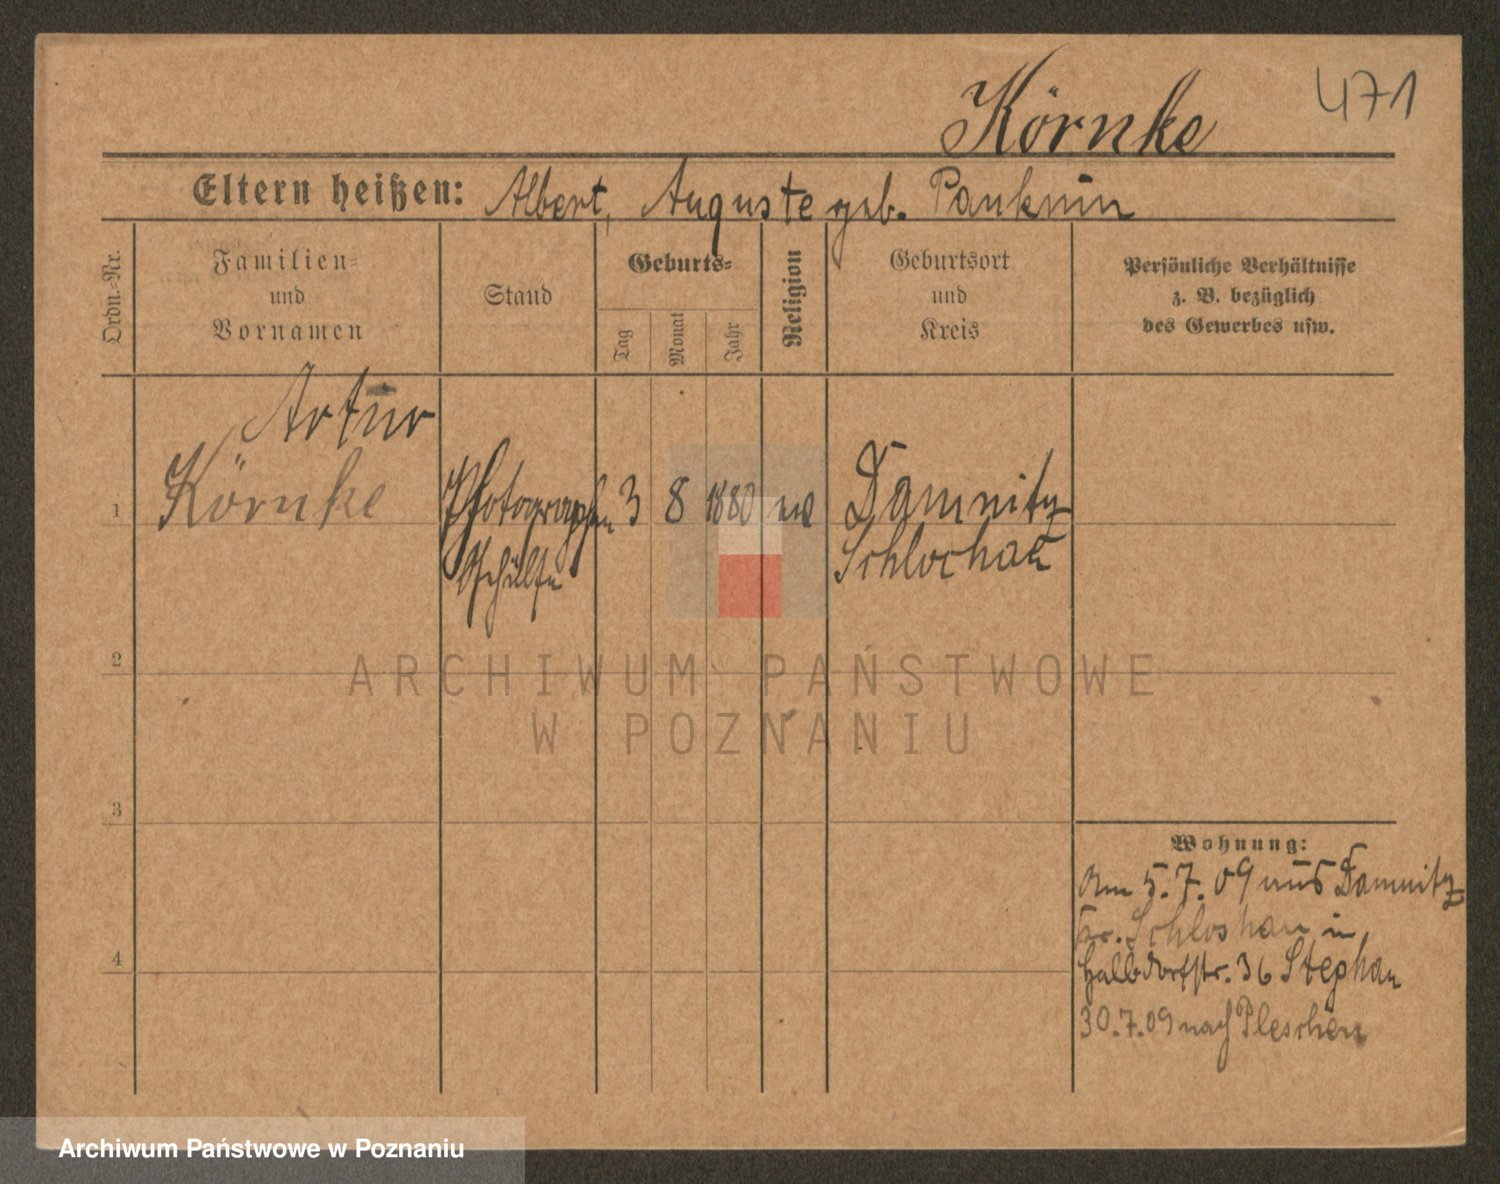 471
Körnke
Eltern heißen: Albert, Auguste geb. Panknin
Ordn.-Nr.
Familien-
und
Vornamen
Stand
Geburts-
Tag
Monat
Jahr
Religion
Geburtsort
und
Kreis
Persönliche Verhältnisse
z. B. bezüglich
des Gewerbes usw.
Artur
1 Körnke Photographen 3 8 1880 ev Damnitz
Gehülfe Schlochau
2
3
4
Wohnung:
Am 5.7.09 aus Damnitz
Kr. Schlochau in
Halbdorfstr. 36 Stephan
30.7.09 nach Pleschen
ARCHIWUM PAŃSTWOWE
W POZNANIU
Archiwum Państwowe w Poznaniu